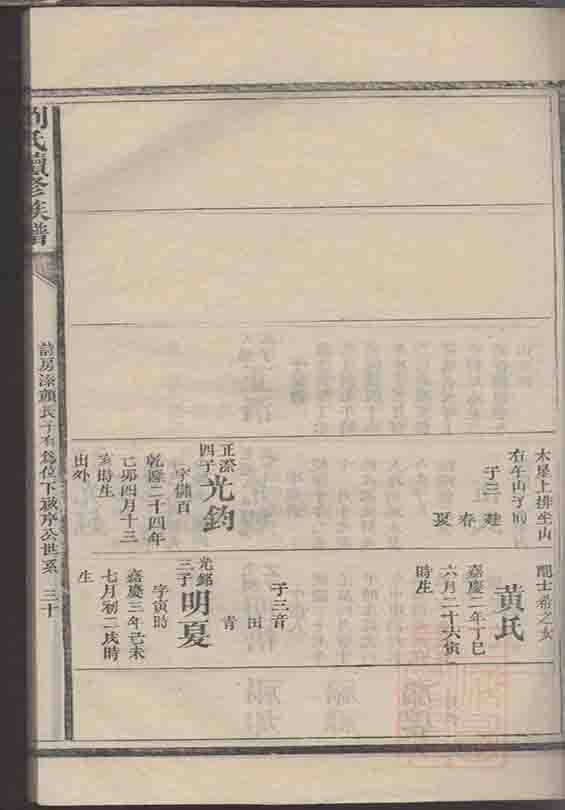 木星上排坐山
有午山子向
子三 建
春
夏
正深
四子
光鈞
字儀百
乾隆二十四年
己卯四月十三
亥時生
出外
聞士希之女
黃氏
嘉慶二年丁巳
六月二十六寅
時生
子三音
田
青
光銘
三子
明夏
字寅時
嘉慶三年己未
七月初二戌時
生
劉氏續修族譜
房深顏長子有爲位下啟序公世系 三十